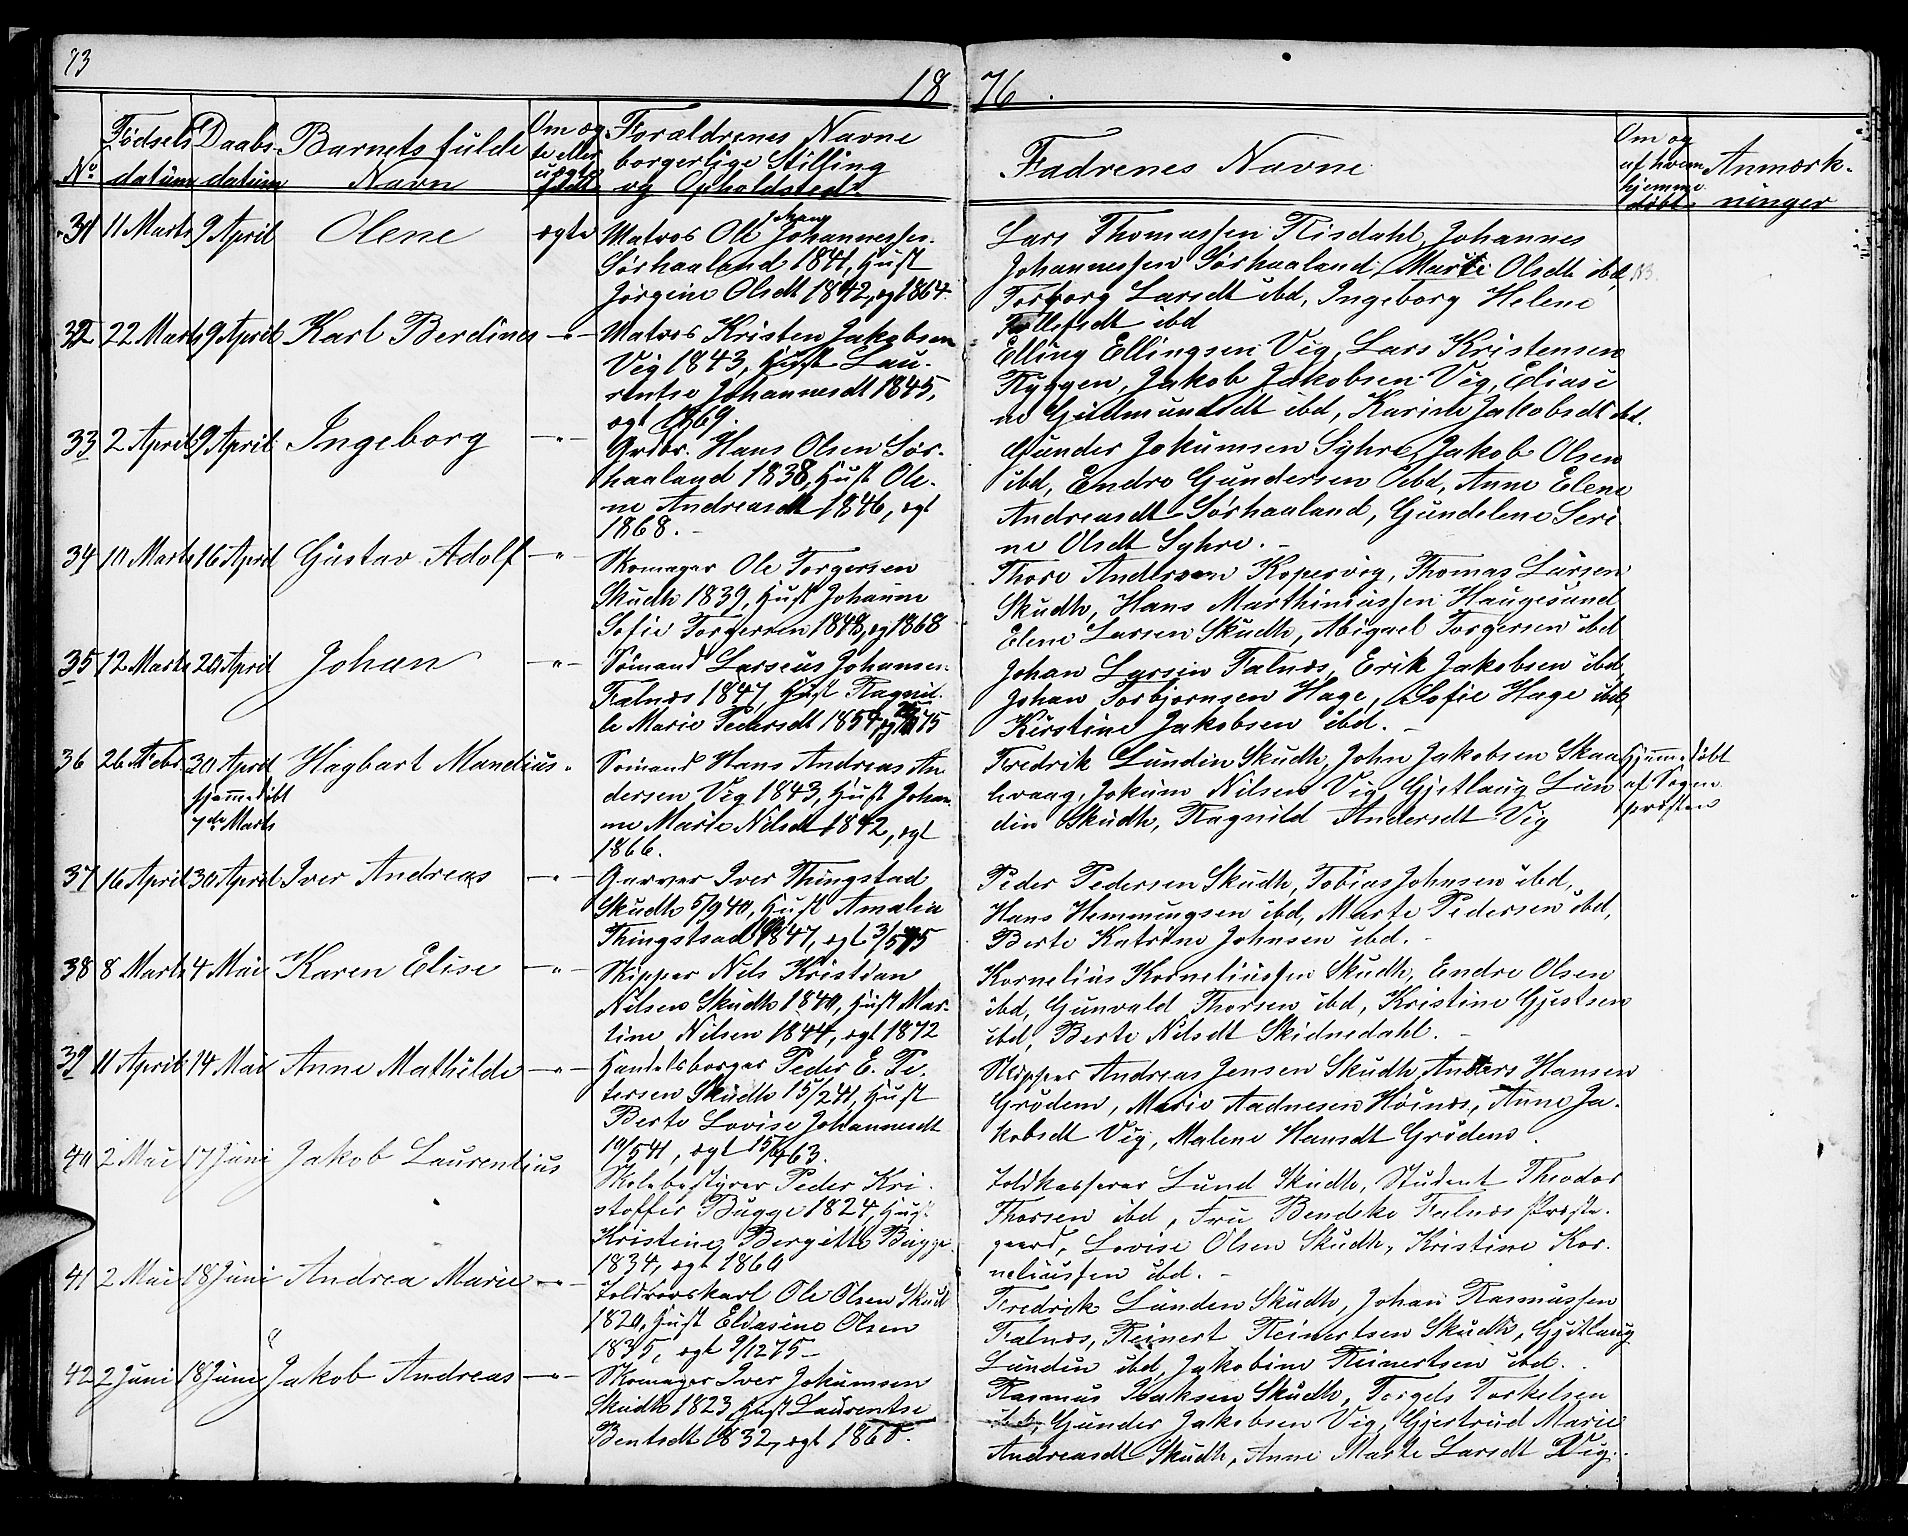 73
18 76.
No
Fødsels
datum
Daabs-
datum
Barnets fulde
Navn
Om æg
te eller
uægte
født
Forældrenes Navne
borgerlige Stilling
og Opholdsted.
Fadrenes Navne
Om og
af hvem
hjemme
døbt
Anmærk-
ninger
31 11 Marts 9 April Olene ægte
Matros Ole Johan Johannessen
Sørhaaland 1841, Hust
Jørgine Olsdt 1842, ægt 1864.
Lars Thomassen Risdahl, Johannes
Johannessen Sørhaaland, Marte Olsdt ibd,
Torborg Larsdt ibd, Ingeborg Helene
Tollefsdt ibd
32 22 Marts 9 April Karl Berdines -"-
Matros Kristen Jakobsen
Vig 1843, Hust Lau-
rentse Johannesdt 1845,
ægt 1869.
Elling Ellingsen Vig, Lars Kristensen
Ryggen, Jakob Jakobsen Vig, Eliasi
ne Gudmundsdt ibd, Karine Jakobsdt ibd.
33 2 April 9 April Ingeborg -"-
Grdbr. Hans Olsen Sør-
haaland 1838, Hust Ole-
ne Andreasdt 1846, ægt
1868. -
Gunder Jokumsen Syhre, Jakob Olsen
ibd, Endre Gundersen ibd, Anne Elene
Andreasdt Sørhaaland, Gundelene Seri
ne Olsdt Syhre. -
34 10 Marts 16 April Gustav Adolf -"-
Skomager Ole Torgersen
Skudh 1839, Hust Johanne
Sofie Torgersen 1848, ægt 1868
Thore Andersen Kopervig, Thomas Larsen
Skudh, Hans Marthiniussen Haugesund
Elene Larsen Skudh, Abigael Torgersen ibd
35 12 Marts 20 April Johan -"-
Sømand Larseus Johansen
Falnæs 1847, Hust Ragnil-
le Marie Pedersdt 1854, ægt 1875
Johan Larsen Falnæs, Erik Jakobsen ibd,
Johan Torbjørnsen Hage, Sofie Hage ibd,
Kirstine Jakobsen ibd. -
36 26 Febr. 30 April Hagbart Mandius "
Hjemmedøbt
7de Marts
Sømand Hans Andreas An
dersen Vig 1843, Hust Johan
ne Marie Nilsdt 1842, ægt
1866.
Fredrik Lunden Skudh, John Jakobsen Skaa
levaag, Jokum Nilsen Vig, Gjetlaug Lun
din Skudh, Ragnild Andersdt Vig
Hjemmedøbt
af Sogne
præsten
37 16 April 30 April Iver Andreas -"-
Garver Iver Thingstad
Skudh 5/9 40, Hust Amalia
Thingstad 1847, ægt 3/5 75
Peder Pedersen Skudh, Tobias Johnsen ibd,
Hans Hemmingsen ibd, Marte Pedersen ibd,
Berte Katrine Johnsen ibd. -
38 8 Marts 4 Mai Karen Elise -"-
Skipper Nils Kristian
Nilsen Skudh 1840, Hust Mar-
tine Nilsen 1844, ægt 1872
Kornelius Korneliussen Skudh, Endre Olsen
ibd, Gunvald Thorsen ibd, Kristine Gjestsen
ibd, Berte Nilsdt Skidnedahl. -
39 11 April 14 Mai Anne Mathilde -"-
Handelsborger Peder E. Pe-
tersen Skudh 15/2 41, Hust
Berte Lovise Johannesdt
19/5 41, ægt 15/4 63.
Skipper Andreas Jensen Skudh, Anders Hansen
Grødem, Marie Aadnesen Høinæs, Anne Ja-
kobsdt Vig, Malene Hansdt Grødem.
40 2 Mai 17 Juni Jakob Laurentius
Skolebestyrer Peder Kri-
stoffer Bugge 1824, Hust
Kristine Bergitte Bugge
1834, ægt 1860
Toldkasserer Lund Skudh, Student Theodor
Thorsen ibd, Fru Bendeke Falnæs Præste-
gaard, Lovise Olsen Skudh, Kristine Kor-
neliussen ibd. -
41 2 Mai 18 Juni Andrea Marie -"-
Toldrorskarl Ole Olsen Skud
1820, Hust Eliasine Olsen
1835, ægt 9/12 75 -
Fredrik Lunden Skudh, Johan Rasmussen
Falnæs, Reinert Reinertsen Skudh, Gjetlaug
Lundin ibd, Jakobine Reinertsen ibd.
42 2 Juni 18 Juni Jakob Andreas -"-
Skomager Iver Jokumsen
Skudh 1823, Hust Laurentse
Bentsdt 1832, ægt 1860.
Rasmus Isaksen Skudh, Torgels Torkelsen
ibd, Gunder Jakobsen Vig, Gjertrud Marie
Andreasdt Skudh, Anne Marte Larsdt Vig.